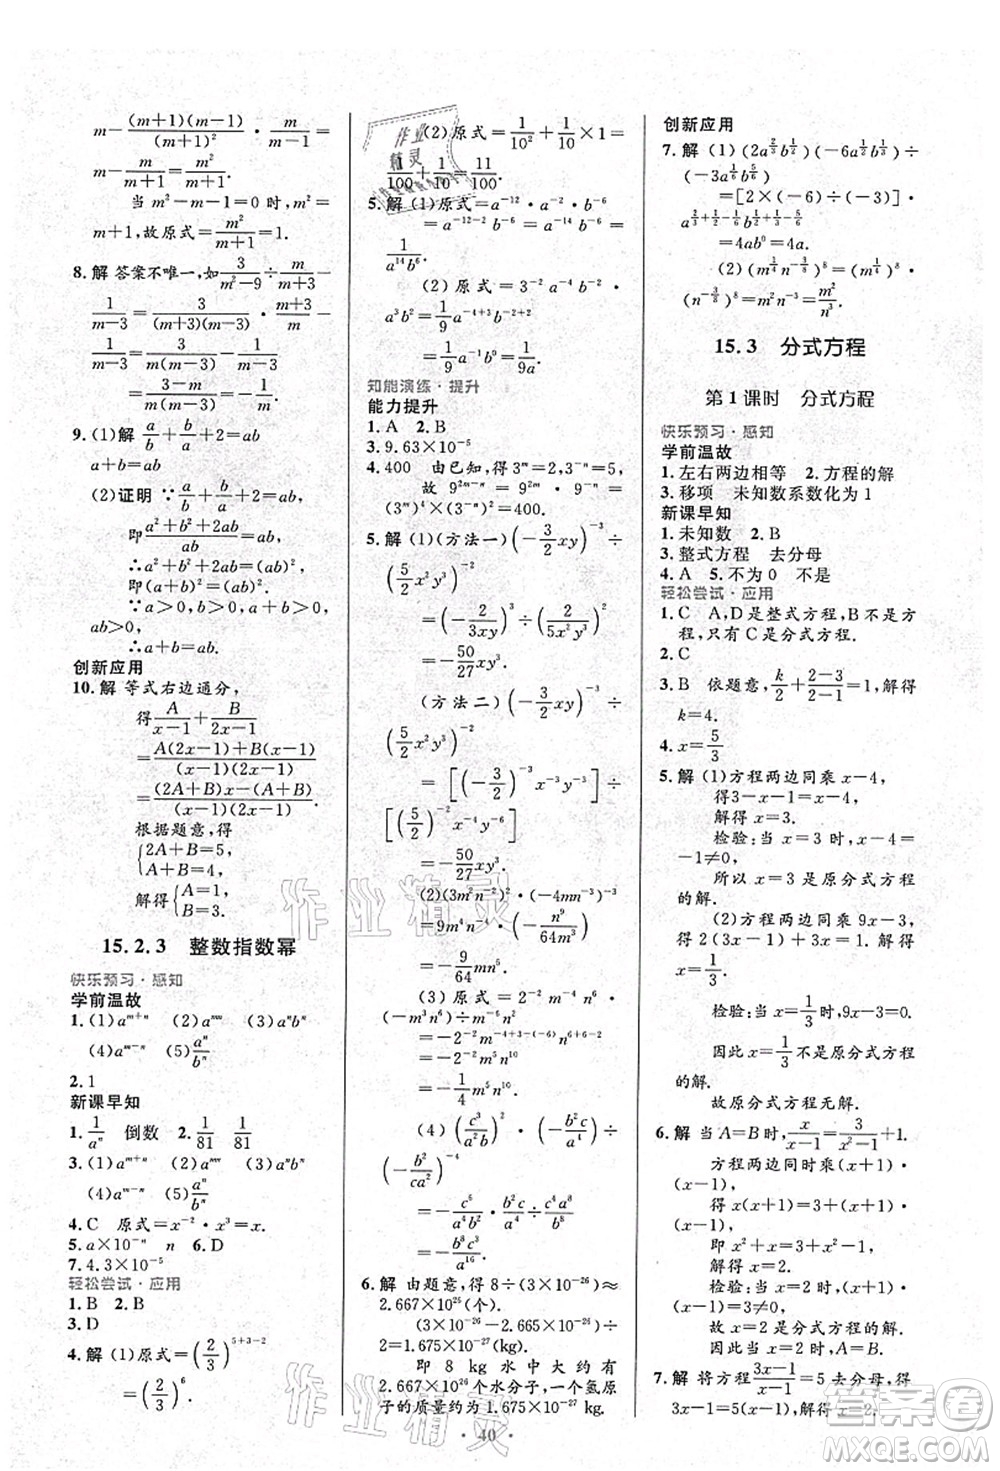 m-\frac{(m+1)(m-1)}{m^2}·\frac{m}{m+1}=
m-\frac{m-1}{m}
当 m²-m-1=0 时,m²=
m+1,故原式=\frac{m^2}{m+1}=1.
8.解 答案不唯一,如\frac{3}{m^2-9}÷\frac{m}{m+3}+
\frac{1}{m-3}=\frac{3}{(m+3)(m-3)}·\frac{m+3}{m}+
\frac{1}{m-3}=\frac{3}{m(m-3)}+\frac{m}{m(m-3)}=
9.(1)解 \frac{a}{b}+\frac{b}{a}+2=ab
a+b=ab
(2)证明 ∵\frac{a}{b}+\frac{b}{a}+2=ab,
即\frac{a^2+b^2+2ab}{ab}=ab,
∴a²+b²+2ab=a²b²,
即(a+b)²=(ab)².
∵a>0,b>0,a+b>0,
ab>0,
∴a+b=ab.
创新应用
10.解 等式右边通分,
得\frac{A}{x-1}+\frac{B}{2x-1}
=\frac{A(2x-1)+B(x-1)}{(x-1)(2x-1)}
=\frac{(2A+B)x-(A+B)}{(x-1)(2x-1)}
根据题意,得
{2A+B=5,
A+B=4,
解得{A=1,
B=3.
15.2.3 整数指数幂
快乐预习·感知
学前温故
1.(1)a^{m+n} (2)a^{mn} (3)a^n b^n
(4)a^{m-n} (5)\frac{a^n}{b^n}
2.1
新课早知
1.\frac{1}{a^n} 倒数 2.\frac{1}{81} \frac{1}{81}
3.(1)a^{m+n} (2)a^{mn} (3)a^n b^n
(4)a^{m-n} (5)\frac{a^n}{b^n}
4.C 原式=x^{-2}·x^3=x.
5.a×10^{-n} n 6.D
7.4.3×10^{-5}
轻松尝试·应用
1.B 2.B
3.D
4.解 (1)原式=(\frac{2}{3})^{5+3-2}
=(\frac{2}{3})^6.
(2)原式=\frac{1}{10^2}+\frac{1}{10}×1=
\frac{1}{100}+\frac{1}{10}=\frac{11}{100}.
5.解 (1)原式=a^{-12}·a^{-2}·b^{-6}
=a^{-12-2}b^{-6}=a^{-14}b^{-6}=
\frac{1}{a^{14}b^6}.
(2)原式=3^{-2}a^{-4}b^{-2}·
a³b²=\frac{1}{9}a^{-4+3}b^{-2+2}
=\frac{1}{9}a^{-1}b^0=\frac{1}{9a}.
知能演练·提升
能力提升
1.A 2.B
3.9.63×10^{-5}
4.400 由已知,得3^m=20,3^n=
故 9^{2m-n}=9^{2m}·9^{-n}=
(3^m)^4×(3^n)^{-2}=400.
5.解 (1)(方法一)(-\frac{3}{2}xy)^{-3}÷
=(-\frac{2}{3xy})^3÷(\frac{2}{5x^2y})^2
=-\frac{50}{27}xy^{-1}
(方法二)(-\frac{3}{2}xy)^{-3}÷
(\frac{5}{2}x²y)^{-2}
=[(-\frac{3}{2})^{-3}x^{-3}y^{-3}]÷
[(\frac{5}{2})^{-2}x^{-4}y^{-2}]
=-\frac{50}{27}xy^{-1}.
(2)(3m²n^{-2})²·(-4mn^{-3})^{-3}
=9m^4n^{-4}·(-\frac{n^9}{64m^3})
=-\frac{9}{64}mn^5.
(3)原式=2^{-2}m^{-4}n^6·
(-m³n^6)÷m^{-6}n²
=-2^{-2}m^{-4+3-(-6)}n^{6+6-2}
=-2^{-2}m^5n^{10}
=-\frac{1}{4}m^5n^{10}.
=\frac{c^5}{a^{16}}.
6.解 由题意,得8÷(3×10^{-26})≈
2.667×10^{26}(个).
(3×10^{-26}-2.665×10^{-26})÷
2=1.675×10^{-27}(kg).
即 8 kg 水中大约有
2.667×10^{26}个水分子,一个氢原
子的质量约为1.675×10^{-27}kg.
创新应用
7.解 (1)(2a^{\frac{2}{3}}b^{\frac{1}{2}})(-6a^{\frac{1}{2}}b^{\frac{1}{3}})÷
(-3a^{\frac{1}{6}}b^{\frac{5}{6}})
=[2×(-6)÷(-3)]·
=4ab^0=4a.
(2)(m^{\frac{1}{4}}n^{-\frac{3}{8}})^8=(m^{\frac{1}{4}})^8(
n^{-\frac{3}{8}})^8=m²n^{-3}=\frac{m^2}{n^3}.
15.3 分式方程
第1课时 分式方程
快乐预习·感知
学前温故
1.左右两边相等 2.方程的解
3.移项 未知数系数化为1
新课早知
1.未知数 2.B
3.整式方程 去分母
4.A 5.不为0 不是
轻松尝试·应用
1.C A,D是整式方程,B不是方
程,只有C是分式方程.
2.C
3.B 依题意,\frac{k}{2}+\frac{2-3}{2-1}=1,解得
k=4.
4.x=\frac{5}{3}
5.解 (1)方程两边同乘x-4,
得3-x-1=x-4.
解得 x=3.
检验:当 x=3 时,x-4=
-1≠0,
所以 x=3 是原分式方程
的解.
(2)方程两边同乘9x-3,
\frac{1}{3}.
检验:当x=\frac{1}{3}时,9x-3=0.
因此x=\frac{1}{3}不是原分式方程
的解.
故原分式方程无解.
6.解 当A=B时,\frac{x}{x-1}=\frac{3}{x^2-1}+1.
方程两边同时乘(x+1)·
(x-1),
得 x(x+1)=3+(x+1)·
(x-1).
即 x²+x=3+x²-1.
解得 x=2.
检验:当 x=2 时,(x+1)·
(x-1)=3≠0.
故 x=2是原分式方程的解.
因此,当x=2时,A=B.
7.解 将方程\frac{3x-1}{x-1}=5去分母,得
3x-1=5(x-1),解得x=2.
·40·
作业精灵
答案圈
MXQE.COM